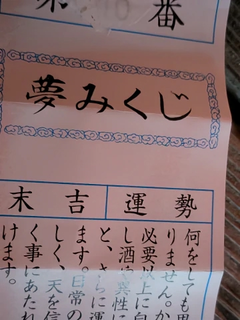 番
夢みくじ
末吉 運勢
何をしても思
りません。か
必要以上に
し酒や異性に
と、さらに運
ます。日常の
しく、天を信
く事にあたれ
けます。